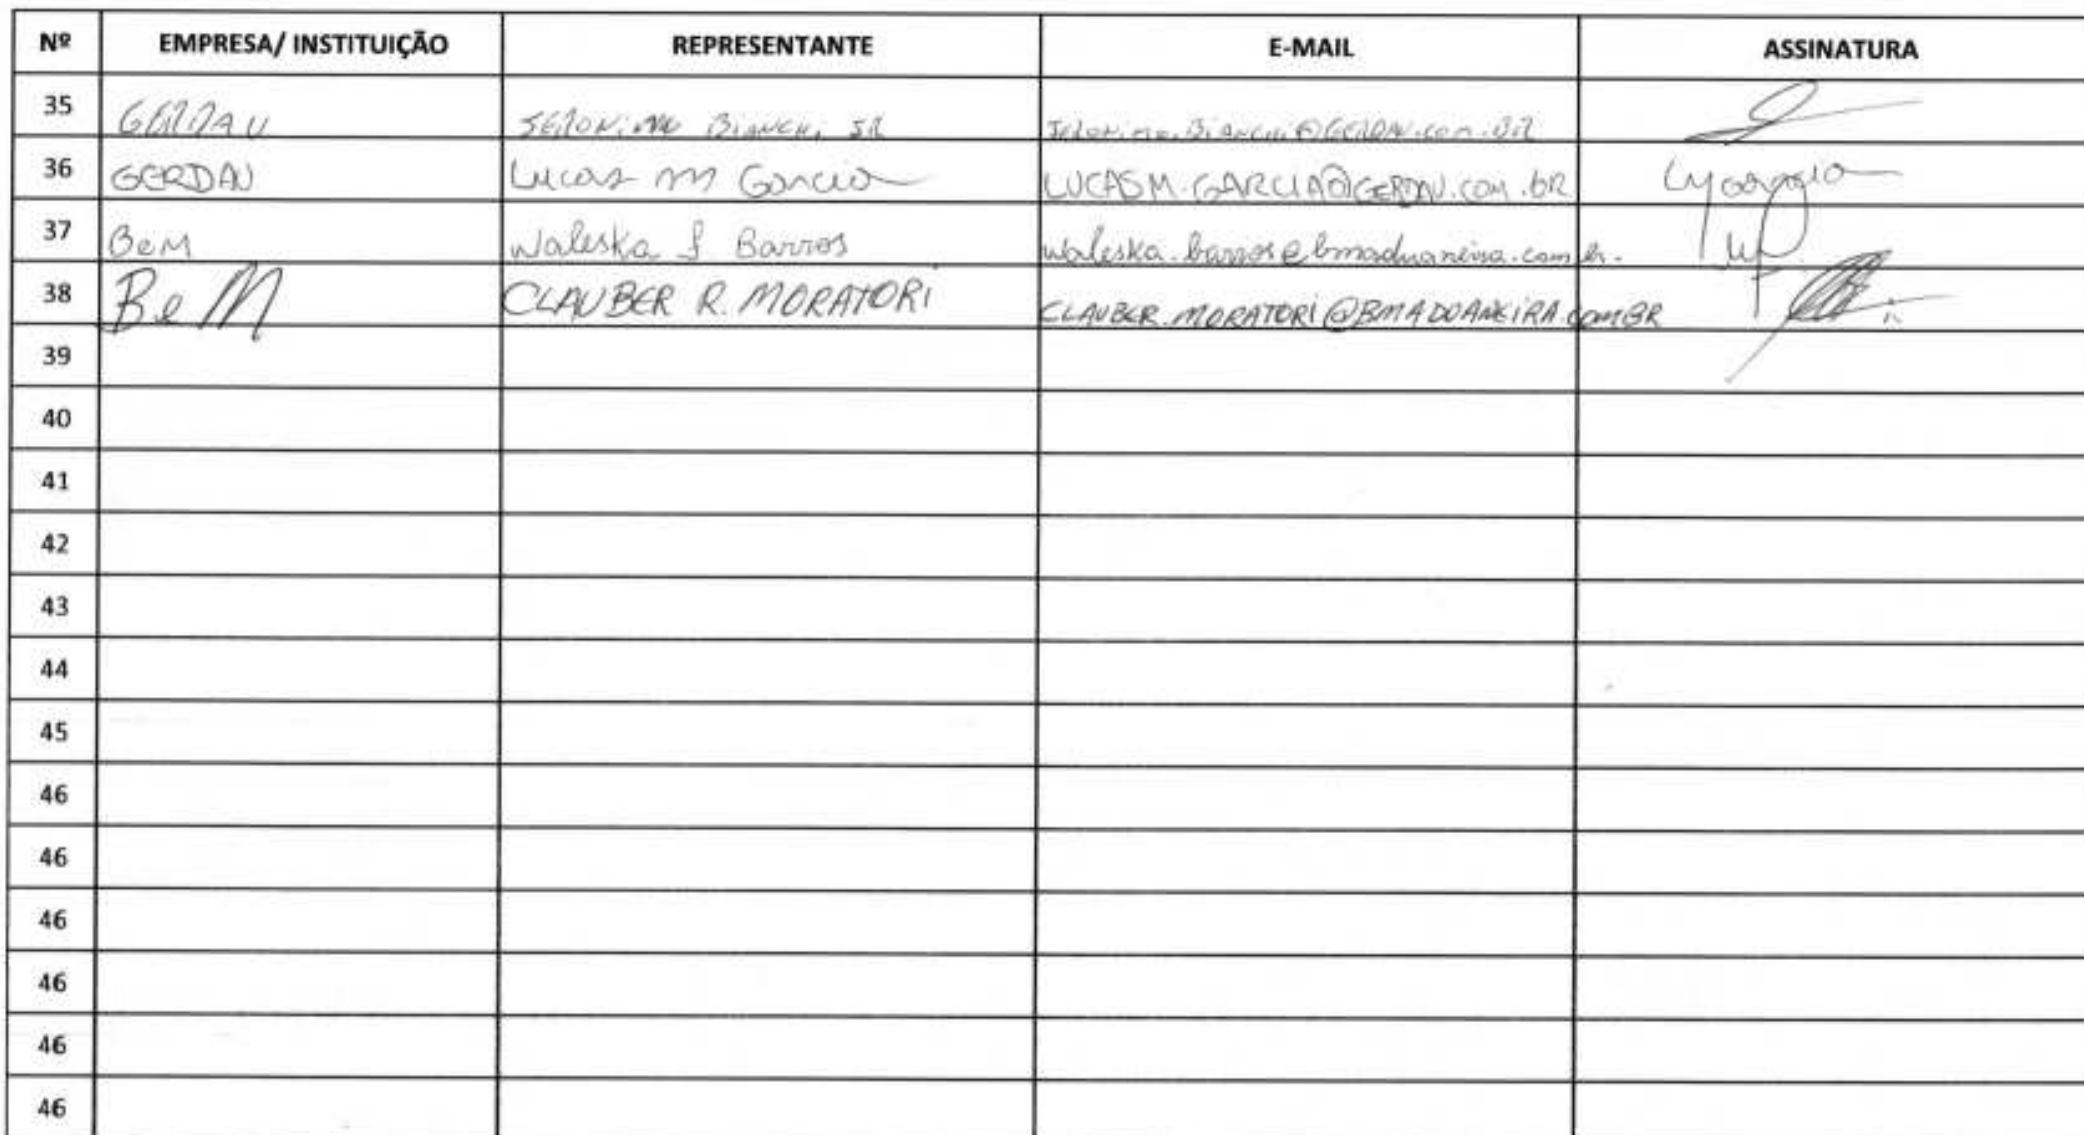 Nº EMPRESA/ INSTITUIÇÃO REPRESENTANTE E-MAIL ASSINATURA
35 GERDAU JERONIMO BIANCHI JR JERONIMO.BIANCHI@GERDAU.COM.BR
36 GERDAU Lucas M Garcia LUCASM.GARCIA@GERDAU.COM.BR
37 BeM Waleska f Barros waleska.barros@bmaduaneira.com.br.
38 BeM CLAUBER R. MORATORI CLAUBER.MORATORI@BMADUANEIRA.COMBR
39
40
41
42
43
44
45
46
46
46
46
46
46